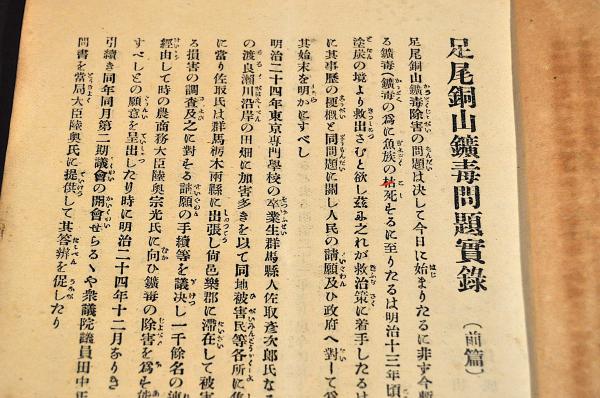 足尾銅山鑛毒問題實錄（前篇）
足尾銅山鑛毒除害の問題は决して今日に始まりたるに非す今暫
る鑛毒（鑛毒の爲に魚族の枯死せるに至りたるは明治十三年頃
塗炭の境より救出さむと欲し茲に之れが救治策に着手したるは
に其事歷の梗槪と同問題に關し人民の請願及ひ政府へ對して爲
其始末を明かにすべし
明治二十四年東京專門學校の卒業生群馬縣人佐取彦次郎氏なる
の渡良瀨川沿岸の田畑に加害多きを以て同地被害民等各所に集
に當り佐取氏は群馬栃木兩縣に出張し尙邑樂郡に滯在して被害
る損害の調査及之に對する請願の手續等を議決し一千餘名の連
經由して時の農商務大臣陸奥宗光氏に向ひ鑛毒の除害を爲を
すべしとの願意を呈出したり時に明治二十四年十二月なりき
引續き同年同月第二期議會の開會せらるゝや衆議院議員田中正
問書を當局大臣陸奥氏に提供して其答辯を促したり